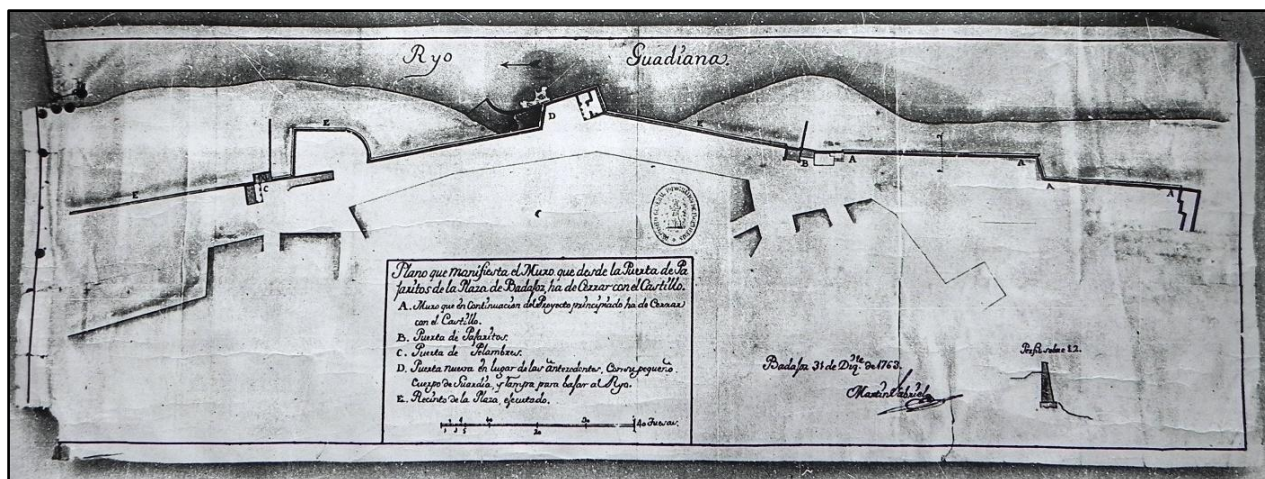 Ryo Guadiana.
E
D
E
B
A
A
A
A
E
C
Plano que manifiesta el Muro que desde la Puerta de Pa
jaritos de la Plaza de Badajoz, ha de Cerrar con el Castillo.
A. Muro que en Continuacion del Proyecto principiado ha de Cerrar
con el Castillo.
B. Puerta de Pajaritos.
C. Puerta de Pelambres.
D. Puerta nueva en lugar de las antecedentes, Con su pequeño
Cuerpo de Guardia, y Rampa para bajar al Ryo.
E. Recinto de la Plaza, executado.
Badajoz 31 de Diz.re de 1763.
Martin Gabriel
Perfil sobre 1.2.